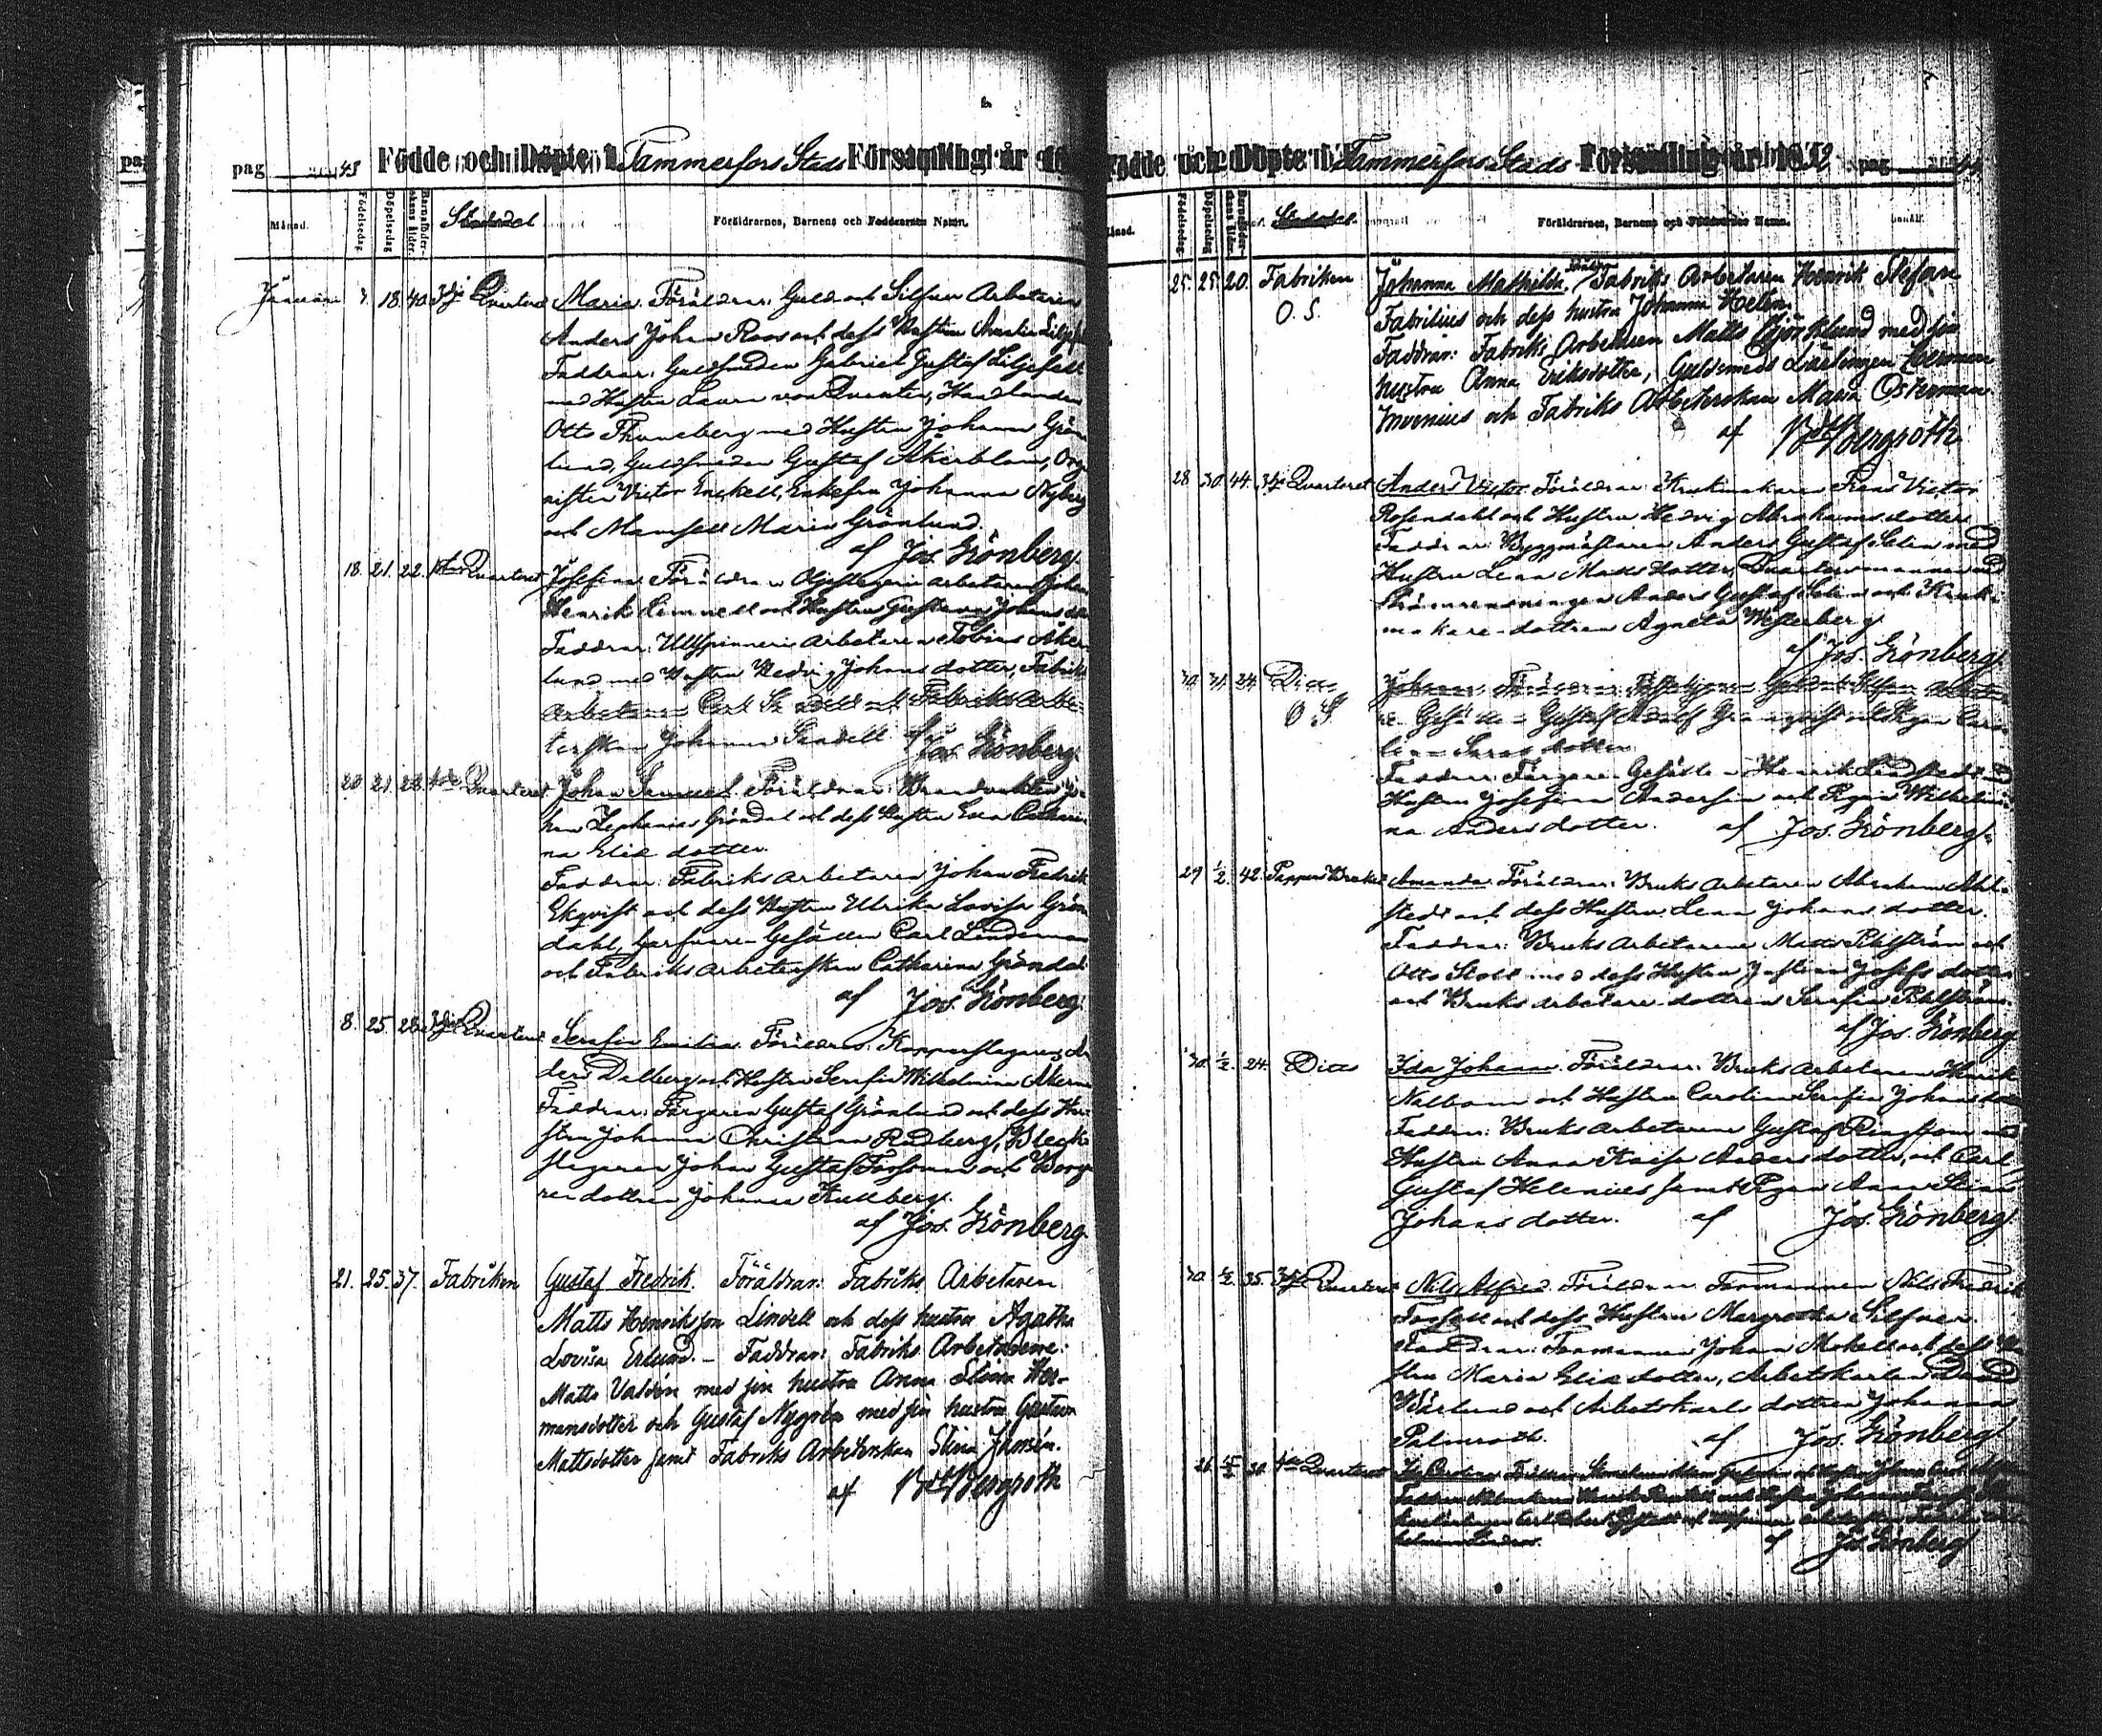 pag 43 Födde och Döpte i Tammerfors Stads Församling år
Månad. Födelsedag. Döpelsedag Barnaföderskans ålder. Föräldrarnes, Barnens och Faddrarnes Namn.
Januari 18. 40 3dje Maria. Föräldrar: Guld och Silfver Arbetaren
Anders Johan Roos och dess Hustru
Faddrar: Guldsmeden Gabriel Gustaf Liljefelt
med Hustru Laura von Quanten, Handlanden
Otto Thuneberg med Hustru Johanna Grön
lund, Guldsmeden Gustaf Åkerblom, Orga
nisten Victor Enckell, Enkefru Johanna Nyberg
och Mamsell Maria Grönlund.
af Jos. Grönberg.
18. 21. 22. Quarteret Josefina. Föräldrar arbetaren Johan
Henrik och Hustru Gustava Johansdr
Faddrar: Ullspinneri arbetaren Tobias Åker
lund med Hustru Hedvig Johansdotter, Fabriks
arbetaren Carl och Fabriks arbe
terskan Johanna af Jos. Grönberg.
20. 21. 28. Quarteret Johan Samuel. Föräldrar: Brandvakten Jo
han Zephanias Gröndal och dess Hustru Eva Cathari
na Elias dotter.
Faddrar: Fabriks arbetaren Johan Fredrik
Ekqvist och dess Hustru Ulrika Lovisa Grön
dahl, Garfvare Gesällen Carl Lindeman
och Fabriks arbeterskan Catharina Gröndal
af Jos. Grönberg.
8. 25. 28. 3dje Quarteret Serafia Emilia. Föräldrar: Kopparslagaren An
ders Dalberg och Hustru Serafia Wilhelmina Åkerma
Faddrar: Färgaren Gustaf Grönlund och dess Hu
stru Johanna Christina Rudberg, Bleck
slagaren Johan Gustaf Forssman och Borga
re dottren Johanna Kullberg.
af Jos. Grönberg.
21. 25. 37. Fabriken Gustaf Fredrik. Föräldrar: Fabriks Arbetaren
Matts Henriksson Lindell och dess hustru Agatha
Lovisa Erlund. – Faddrar: Fabriks Arbetarene:
Matts Valdén med sin hustru Anna Stina Her-
mansdotter och Gustaf Nygrén med sin hustru Gustava
Mattsdotter samt Fabriks Arbeterskan Stina Jansén.
af Bergroth
Födde och Döpte i Tammerfors Stads Församling år 1852 pag 44
Månad. Födelsedag. Döpelsedag Barnaföderskans ålder. Föräldrarnes, Barnens och Faddrarnes Namn.
25. 25. 20. Fabriken Johanna Mathilda, Föräldrar Fabriks Arbetaren Henrik Stefan
O. S. Fabritius och dess hustru Johanna Helen.
Faddrar: Fabriks Arbetaren Matts Björklund med sin
hustru Anna Eriksdotter, Guldsmeds Lärlingen Herman
Invenius och Fabriks Arbeterskan Maria Österman.
af Bergroth
28 30 44. 3dje Quarteret Anders Victor Föräldrar: Krukmakaren Frans Victor
Rosendahl och Hustru Hedvig Abrahams dotter
Faddrar: Byggmästaren Anders Gustaf Selin med
Hustru Lena Matts dotter, Quartersmannen vid
Strömrensningen Anders Gustaf Selin och Kruk-
makare-dottren Agneta Westerberg
af Jos. Grönberg.
30 31. 24. Ditto Johan. Föräldrar: Guld och Silfver Arbeta
O. S. re Gesällen Gustaf Adolf Granqvist och Pigan Caro
lina Saras dotter.
Faddrar: Färgare-Gesällen Henrik Lindstedt med
Hustru Josefina Andersin och Pigan Wilhelmi
na Anders dotter. af Jos. Grönberg.
29 1/2. 42. Pappers Bruket Amanda. Föräldrar: Bruks arbetaren Abraham Ahl-
stedt och dess Hustru Lena Johans dotter.
Faddrar: Bruks arbetarene Matts Pihlström och
Otto Stoll med dess Hustru Justina Josefs dotter
och Bruks arbetare dottren Serafia Pihlström
af Jos. Grönberg
30. 1/2. 24. Ditto Ida Johanna. Föräldrar: Bruks arbetaren Henrik
Nalbom och Hustru Carolina Serafia Johansdotter
Faddrar: Bruks arbetarene Gustaf Ringbom med
Hustru Anna Kaisa Anders dotter, och Carl
Gustaf Helenius samt Pigan Anna Stina
Johans dotter. af Jos. Grönberg
30 1/2. 35. 3dje Quarteret Nils Alfred. Föräldrar: Formannen Nils Fredrik
Forsell och dess Hustru Margretha Silfver.
Faddrar: Formannen Johan Mokell och dess Hu
stru Maria Elias dotter, Arbetskarlen David
och Arbetskarls dottren Johanna
Palmroth. af Jos. Grönberg
26 30. Quarteret Föräldrar:
af Jos. Grönberg